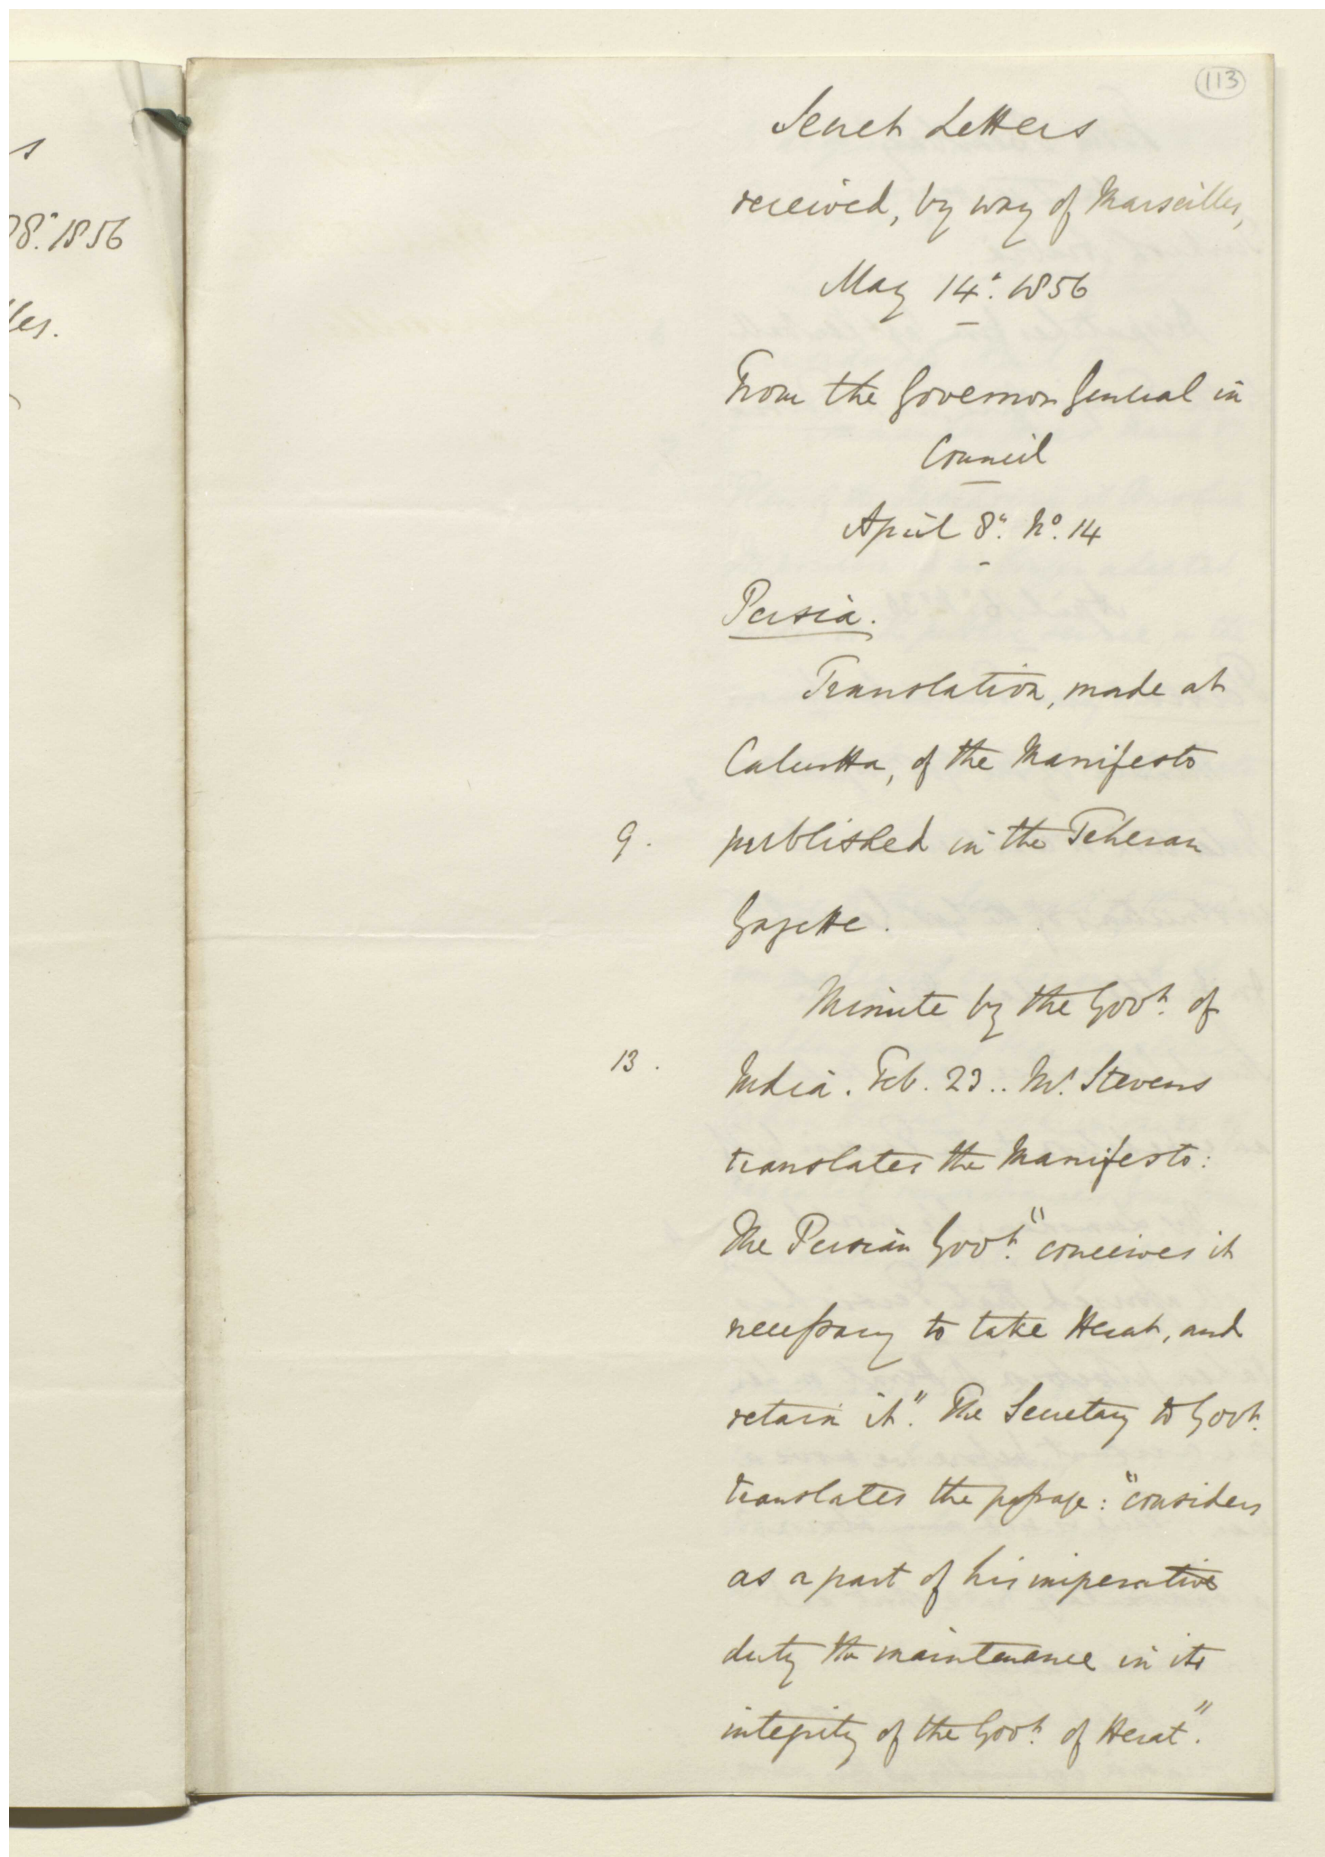 113
Secret Letters
received, by way of Marseilles,
May 14". 1856
From the Governor General in
Council
April 8". No. 14
Persia.
Translation, made at
Calcutta, of the Manifesto
9. published in the Teheran
Gazette.
Minute by the Govt. of
13. India. Feb. 23.. Mr. Stevens
translates the Manifesto:
The Persian Govt. "conceives it
necessary to take Herat, and
retain it". The Secretary to Govt.
translates the passage: "considers
as a part of his imperative
duty the maintenance in its
integrity of the Govt. of Herat".
s
8". 1856
les.